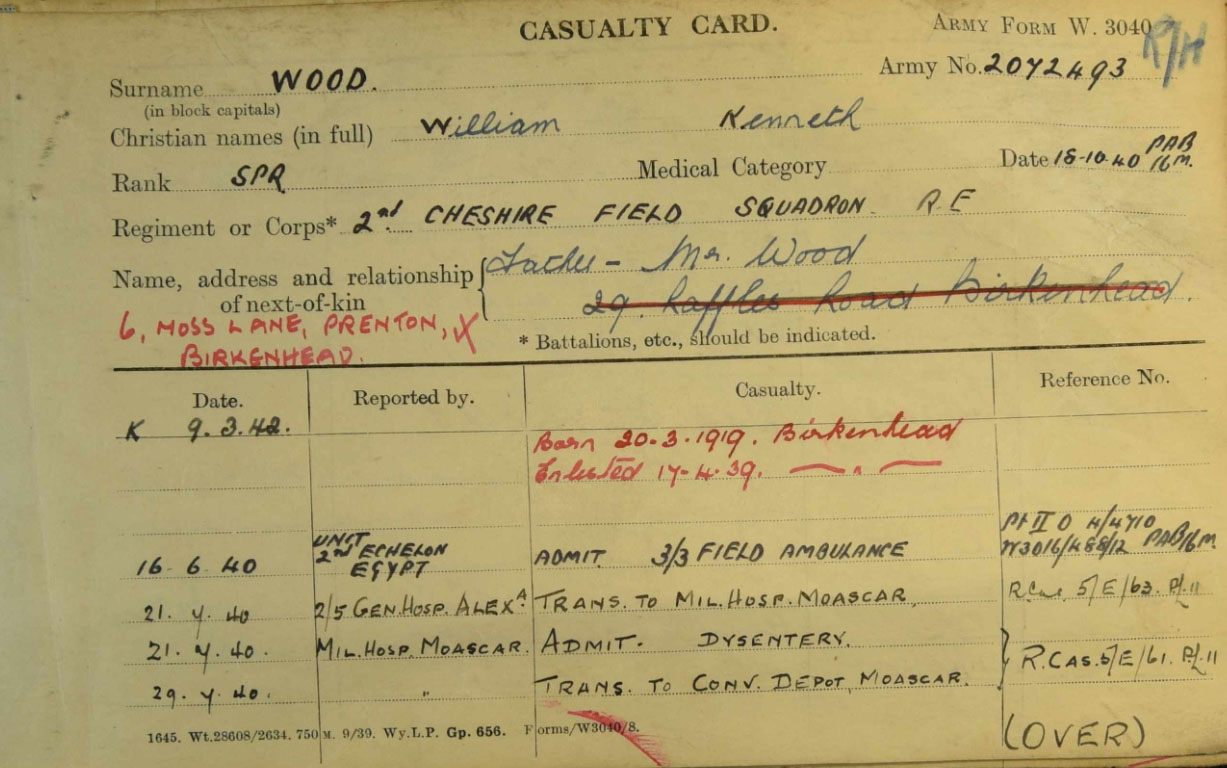 CASUALTY CARD.
ARMY FORM W. 3040
R/H
Surname WOOD.
Army No. 2072493
(in block capitals)
Christian names (in full) William Kenneth
Rank SPR Medical Category Date 18-10-40 PAB 16M.
Regiment or Corps* 2nd CHESHIRE FIELD SQUADRON R.E
Name, address and relationship of next-of-kin
Father - Mr. Wood
29. Raffles Road Birkenhead.
6, MOSS LANE, PRENTON, X
BIRKENHEAD.
* Battalions, etc., should be indicated.
Date. Reported by. Casualty. Reference No.
K 9.3.42.
Born 20-3-1919. Birkenhead
Enlisted 17-4-39. — " —
16-6-40 UNIT 2nd ECHELON EGYPT ADMIT 3/3 FIELD AMBULANCE Pt II O 4/4710 W3016/488/12 PAB/16M
21.7.40 2/5 GEN.HOSP. ALEXA. TRANS. TO MIL.HOSP. MOASCAR. R.Cas. 5/E/63. Pt.11
21.7.40. MIL.HOSP. MOASCAR. ADMIT. DYSENTERY.
R.CAS.5/E/61. Pt.11
29.7.40. " TRANS. TO CONV. DEPOT, MOASCAR.
1645. Wt.28608/2634. 750M. 9/39. Wy.L.P. Gp. 656. Forms/W3040/8.
(OVER)